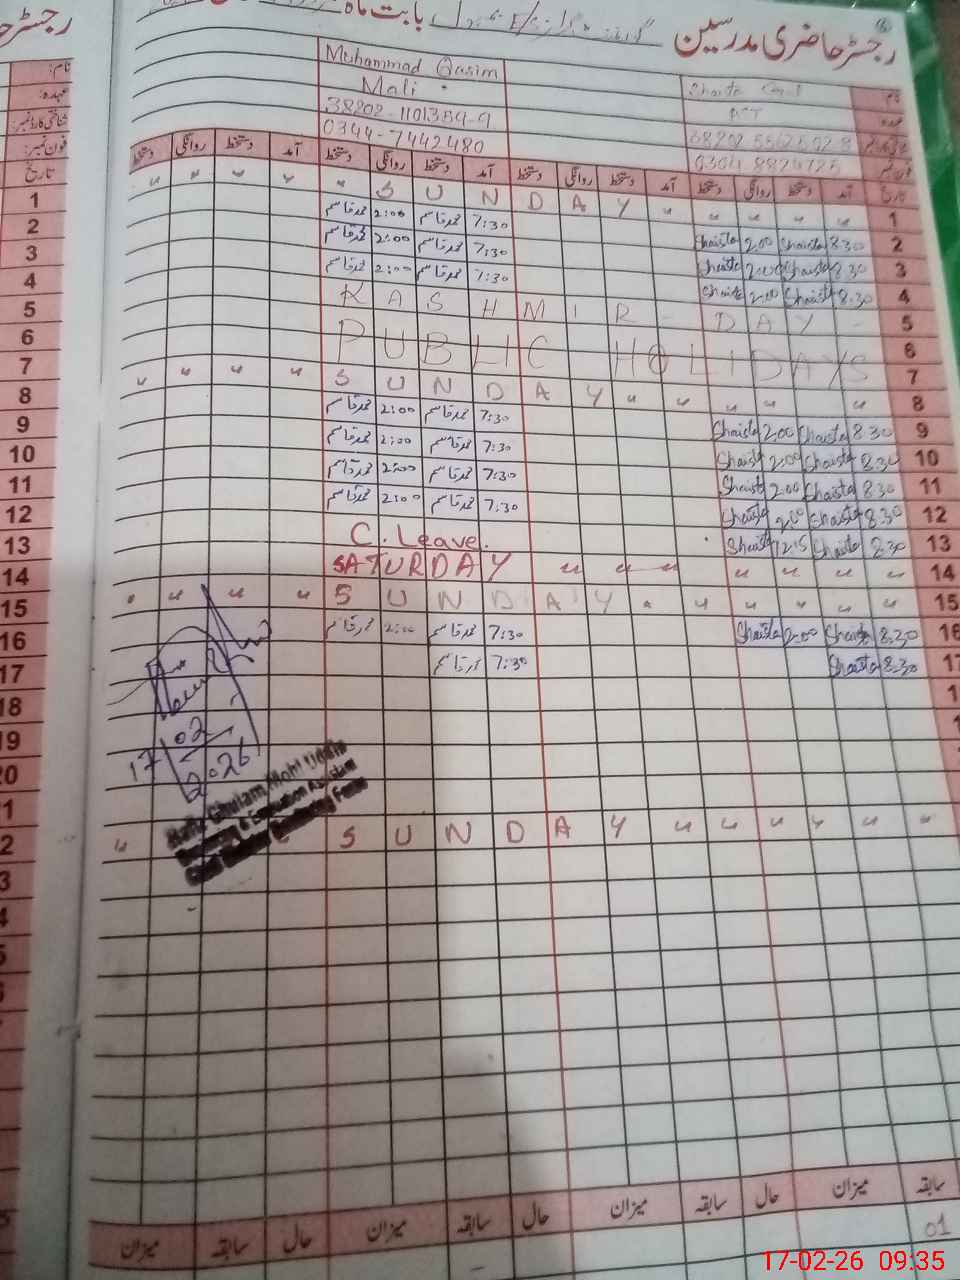 رجسٹر حاضری مدرسین
بابت ماہ
نام
Muhammad Qasim
Shaista
Mali
38202-1101384-9
0344-7442480
0304 8824725
تاریخ آمد دستخط روانگی دستخط آمد دستخط روانگی دستخط آمد دستخط روانگی دستخط آمد دستخط روانگی دستخط
1 " " " " " S U N D A Y " " " " "
2 Shaista 2.00 Shaista 8.30 محمد قاسم 2:00 محمد قاسم 7:30
3 Shaista 2.00 Shaista 8.30 محمد قاسم 2:00 محمد قاسم 7:30
4 Shaista 2.00 Shaista 8.30 محمد قاسم 2:00 محمد قاسم 7:30
5 KASHMIR DAY
6 PUBLIC HOLIDAYS
7
8 " " " " S U N D A Y " " " " "
9 Shaista 2.00 Shaista 8.30 محمد قاسم 2:00 محمد قاسم 7:30
10 Shaista 2.00 Shaista 8.30 محمد قاسم 2:00 محمد قاسم 7:30
11 Shaista 2.00 Shaista 8.30 محمد قاسم 2:00 محمد قاسم 7:30
12 Shaista 2.00 Shaista 8.30 محمد قاسم 2:00 محمد قاسم 7:30
13 Shaista 12.15 Shaista 8.30 C. Leave.
14 SATURDAY " " " " " " "
15 " " " " S U N D A Y " " " " "
16 Shaista 2.00 Shaista 8.30 محمد قاسم 2:00 محمد قاسم 7:30
17 Shaista 8.30 محمد قاسم 7:30
18
19
20
17/02/2026
Hafiz Ghulam Mohi Uddin
Monitoring & Evaluation Assistant
Chief Minister Monitoring Force
" S U N D A Y " " " " " "
سابقہ میزان حال سابقہ میزان حال سابقہ میزان حال سابقہ میزان
01
نام:
عہدہ:
شناختی کارڈ نمبر:
فون نمبر:
تاریخ
17-02-26 09:35